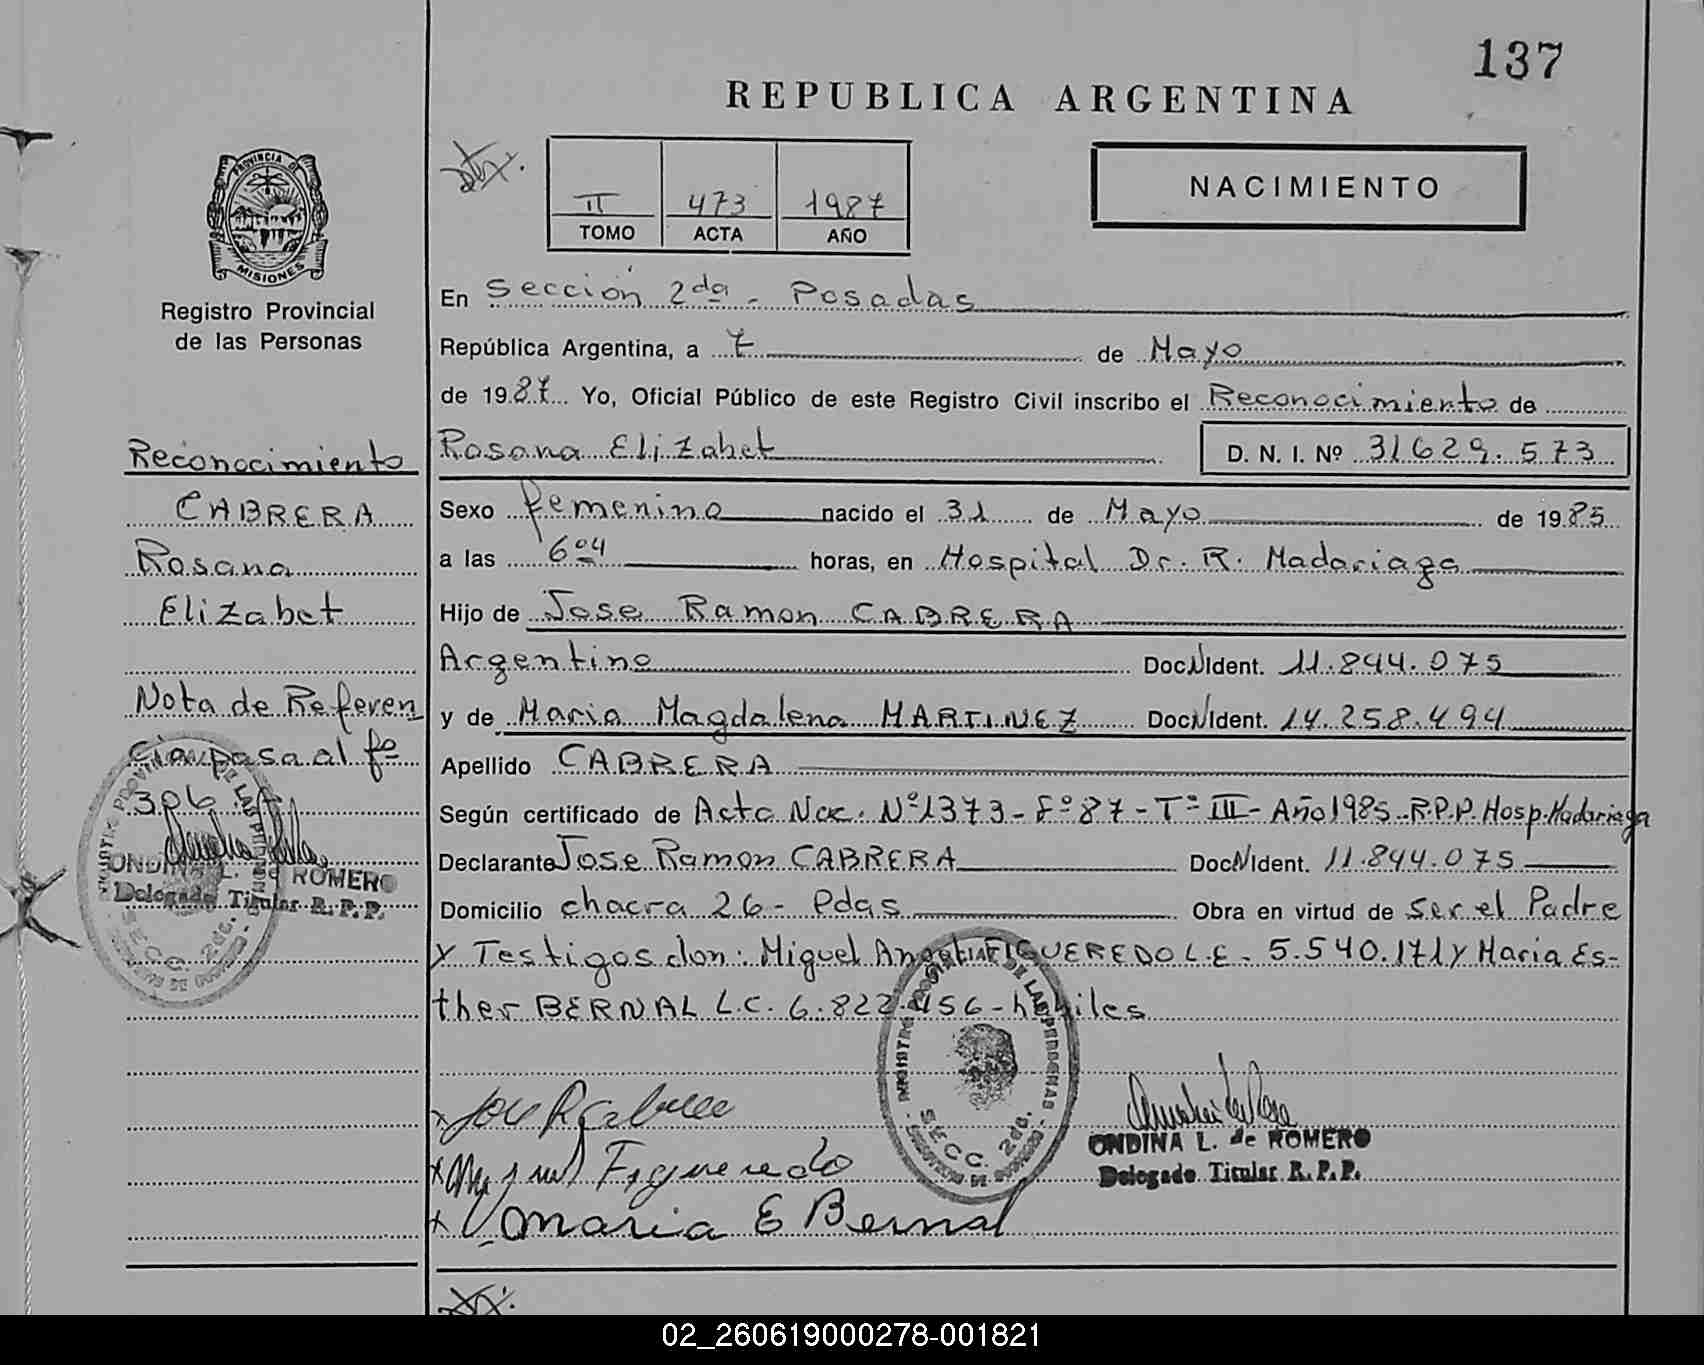 137
REPUBLICA ARGENTINA
NACIMIENTO
II 473 1987
TOMO ACTA AÑO
PROVINCIA DE
MISIONES
Registro Provincial
de las Personas
Reconocimiento
CABRERA
Rosana
Elizabet
Nota de Referen
cia pasa al fº
396
ONDINA L. de ROMERO
Delegado Titular R.P.P.
SECC. 2da.
En Sección 2da - Posadas
República Argentina, a 7 de Mayo
de 1987 Yo, Oficial Público de este Registro Civil inscribo el Reconocimiento de
Rosana Elizabet D. N. I. Nº 31629.573
Sexo femenino nacido el 31 de Mayo de 1985
a las 6º4 horas, en Hospital Dr. R. Madariaga
Hijo de Jose Ramon CABRERA
Argentino Doc N Ident. 11.844.075
y de Maria Magdalena MARTINEZ Doc N Ident. 14.258.494
Apellido CABRERA
Según certificado de Acta Nac. Nº1373-Fº87-Tº III-Año1985-R.P.P. Hosp. Madariaga
Declarante Jose Ramon CABRERA Doc N Ident. 11.844.075
Domicilio chacra 26- Pdas Obra en virtud de ser el Padre
y Testigos don: Miguel Angel FIGUEREDO L.E. 5.540.171 y Maria Es-
ther BERNAL L.C. 6.822.456-habiles
REGISTRO PROVINCIAL DE LAS PERSONAS
SECC. 2da.
Jose R Cabrera
Miguel Figueredo
Maria E Bernal
ONDINA L. de ROMERO
Delegado Titular R.P.P.
02_260619000278-001821